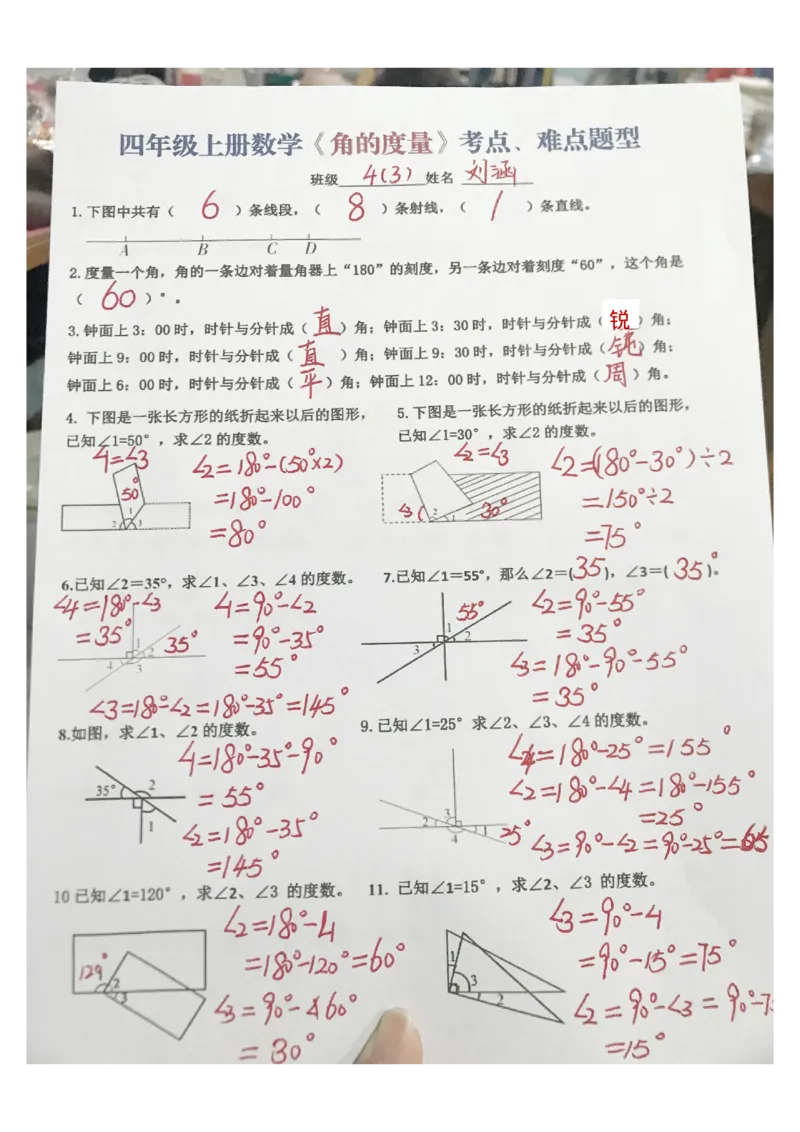 四年级上册数学《角的度量》考点、难点题型
班级 4(3) 姓名 刘涵
1.下图中共有( 6 )条线段,( 8 )条射线,( 1 )条直线。
A B C D
2.度量一个角,角的一条边对着量角器上“180”的刻度,另一条边对着刻度“60”,这个角是
( 60 )°。
3.钟面上3:00时,时针与分针成( 直 )角;钟面上3:30时,时针与分针成( 锐 )角;
钟面上9:00时,时针与分针成( 直 )角;钟面上9:30时,时针与分针成( 钝 )角;
钟面上6:00时,时针与分针成( 平 )角;钟面上12:00时,时针与分针成( 周 )角。
4. 下图是一张长方形的纸折起来以后的图形,
已知∠1=50°,求∠2的度数。
∠1=∠3
∠2=180°-(50°×2)
=180°-100°
=80°
50°
1
2 3
5.下图是一张长方形的纸折起来以后的图形,
已知∠1=30°,求∠2的度数。
∠2=∠3
∠2=(180°-30°)÷2
=150°÷2
=75°
∠3 2 1 30°
6.已知∠2=35°,求∠1、∠3、∠4的度数。
∠4=180°-∠3
=35°
∠1=90°-∠2
=90°-35°
=55°
1 2 35°
4 3
∠3=180°-∠2=180°-35°=145°
7.已知∠1=55°,那么∠2=(35),∠3=( 35° )。
55°
1 2
3
∠2=90°-55°
=35°
∠3=180°-90°-55°
=35°
8.如图,求∠1、∠2的度数。
∠1=180°-35°-90°
=55°
∠2=180°-35°
=145°
35° 2
1
9.已知∠1=25°求∠2、∠3、∠4的度数。
∠4=180°-25°=155°
∠2=180°-∠4=180°-155°
=25°
∠3=90°-∠2=90°-25°=65
3
2 1 25°
4
10已知∠1=120°,求∠2、∠3 的度数。
∠2=180°-∠1
=180°-120°=60°
∠3=90°-60°
=30°
2
3
11. 已知∠1=15°,求∠2、∠3 的度数。
∠3=90°-∠1
=90°-15°=75°
∠2=90°-∠3=90°-7
=15°
1
3
2